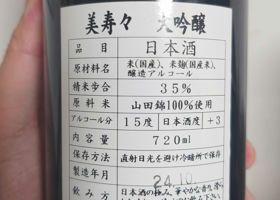 美寿々 大吟醸
品目 日本酒
原材料名 米(国産)、米麹(国産米)、
醸造アルコール
精米歩合 35%
原料米 山田錦100%使用
アルコール分 15度 日本酒度 +3
内容量 720ml
保存方法 直射日光を避け冷暗所で保存
製造年月 24.10
飲み方 日本酒の極み、華やかな香り